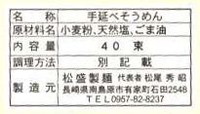 名 称 手延べそうめん
原材料名 小麦粉、天然塩、ごま油
内 容 量 40 束
調理方法 別 記 載
製 造 元 松盛製麺 代表者 松尾 秀 昭
長崎県南島原市有家町石田2548
TEL0957-82-8237